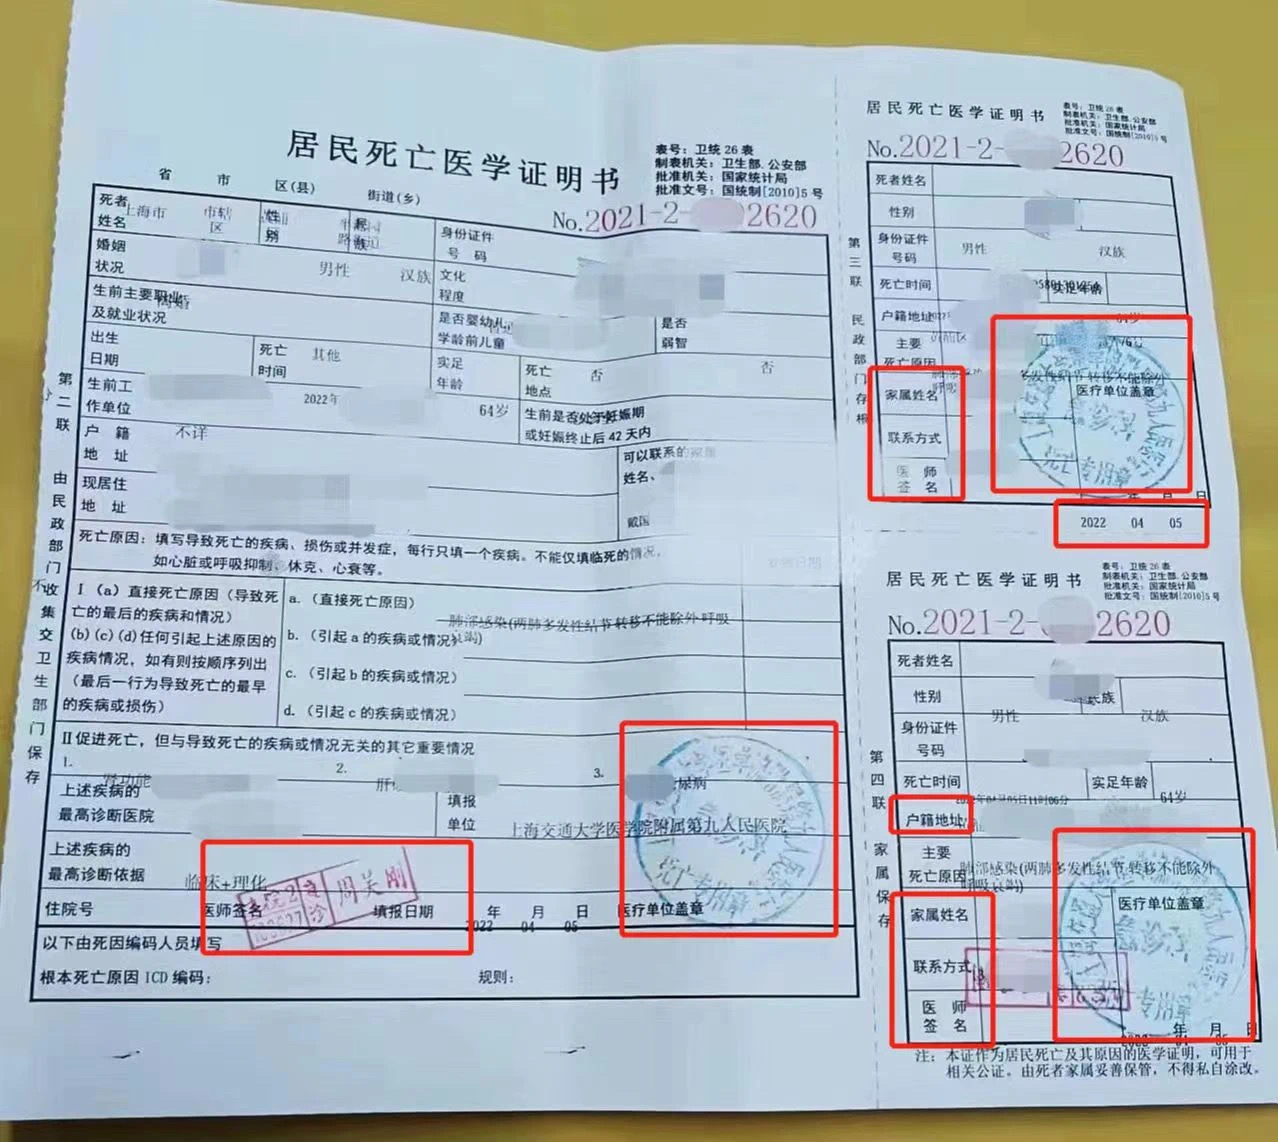 居民死亡医学证明书
表号：卫统26表
制表机关：卫生部.公安部
批准机关：国家统计局
批准文号：国统制[2010]5号
省 市 区(县) 街道(乡)
No.2021-2- 2620
死者姓名 上海市 市辖区 性别 民族 身份证件号码
婚姻状况 男性 汉族 文化程度
生前主要职业及就业状况 离婚 是否婴幼儿、学龄前儿童 是否弱智
出生日期 死亡时间 其他 实足年龄 否 死亡地点 否
生前工作单位 2022年 64岁 生前是否处于妊娠期或妊娠终止后42天内
户籍地址 不详 可以联系的家属姓名、
现居住地址
死亡原因：填写导致死亡的疾病、损伤或并发症，每行只填一个疾病。不能仅填临死的情况，
如心脏或呼吸抑制、休克、心衰等。
I (a)直接死亡原因(导致死亡的最后的疾病和情况)
(b)(c)(d)任何引起上述原因的疾病情况，如有则按顺序列出
(最后一行为导致死亡的最早的疾病或损伤)
a.(直接死亡原因)
肺部感染(两肺多发性结节转移不能除外 呼吸衰竭)
b.(引起a的疾病或情况)
c.(引起b的疾病或情况)
d.(引起c的疾病或情况)
II促进死亡，但与导致死亡的疾病或情况无关的其它重要情况
1. 肾功能 2. 肝 3. 尿病
上述疾病的最高诊断医院 填报单位 上海交通大学医学院附属第九人民医院
上述疾病的最高诊断依据 临床+理化
住院号 医师签名 周关刚 填报日期 2022 年 04 月 05 日 医疗单位盖章
以下由死因编码人员填写
根本死亡原因ICD编码： 规则：
第二联 由民政部门收集交卫生部门保存
居民死亡医学证明书
表号：卫统26表
制表机关：卫生部.公安部
批准机关：国家统计局
批准文号：国统制[2010]5号
No.2021-2- 2620
死者姓名
性别
身份证件号码 男性 汉族
死亡时间 实足年龄
户籍地址 64岁
主要死亡原因
家属姓名 医疗单位盖章
联系方式
医师签名
年 月 日
2022 04 05
死亡专用章
第三联 民政部门存根
居民死亡医学证明书
表号：卫统26表
制表机关：卫生部.公安部
批准机关：国家统计局
批准文号：国统制[2010]5号
No.2021-2- 2620
死者姓名
性别 民族
身份证件号码 男性 汉族
死亡时间 实足年龄
2022年04月05日11时06分 64岁
户籍地址
主要死亡原因 肺部感染(两肺多发性结节转移不能除外 呼吸衰竭)
家属姓名 医疗单位盖章
联系方式
医师签名
年 月 日
专用章
第四联 家属保存
注：本证作为居民死亡及其原因的医学证明，可用于
相关公证。由死者家属妥善保管，不得私自涂改。